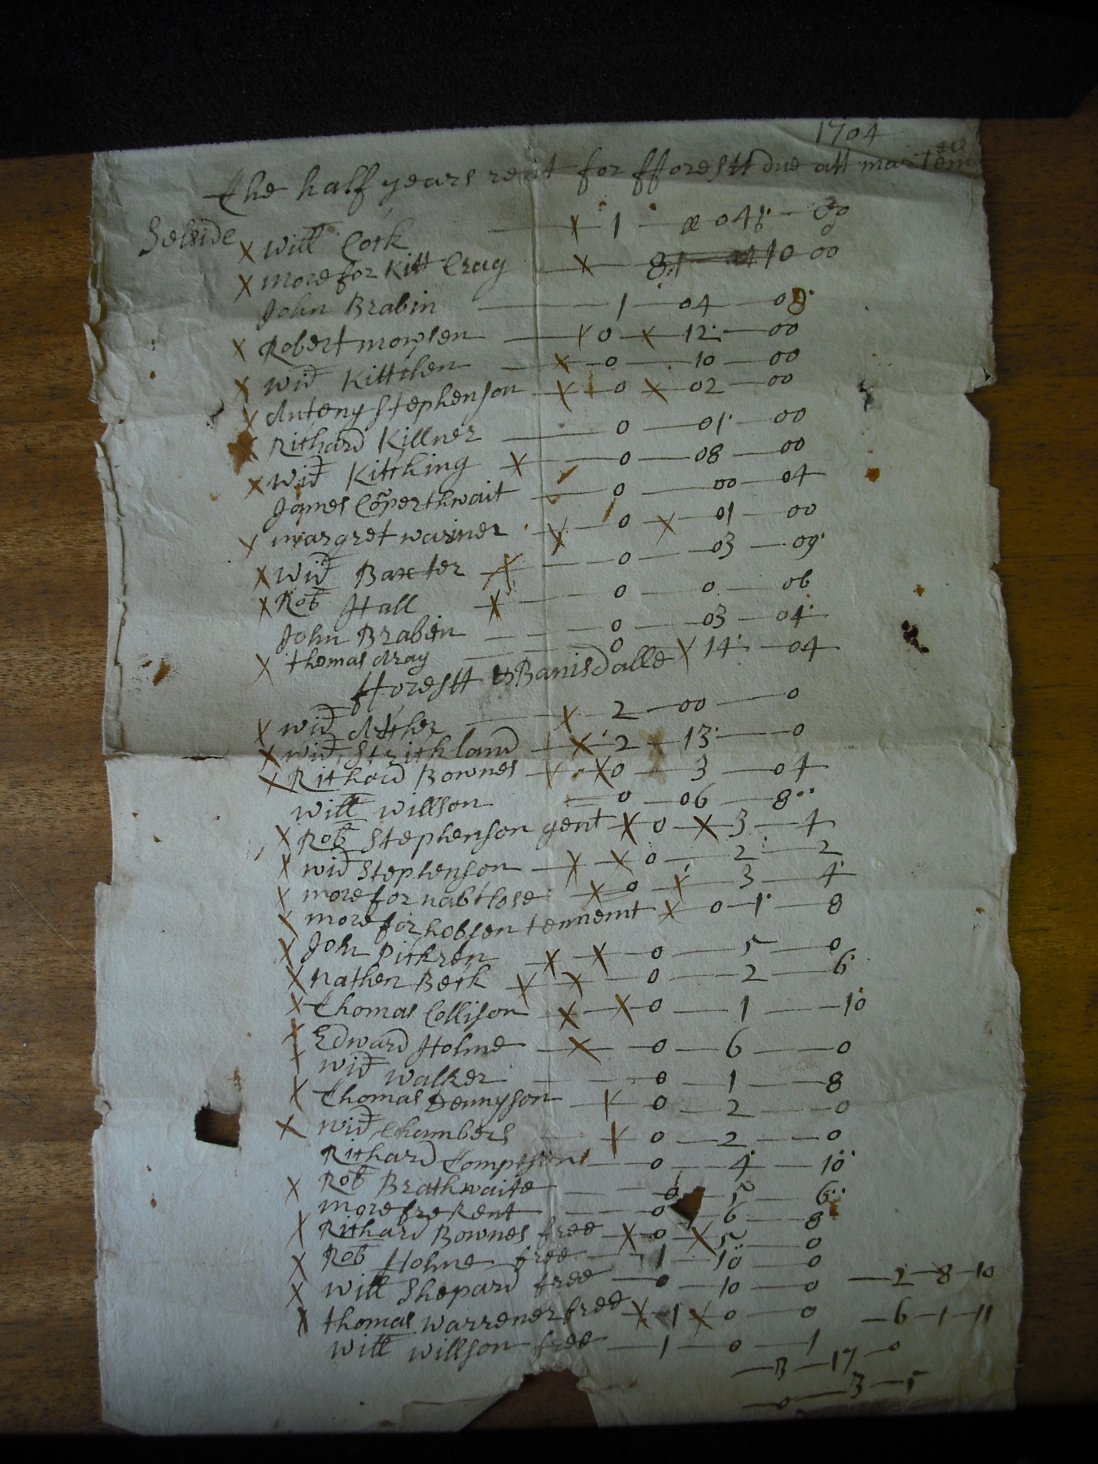 1704
The half years rent for fforestt due att martemas
Selside
X Will Cock X 1 04 00
X more for Kitt Crag X 10 00
John Brabin 1 04 08
X Robert mowsen X 0 X 12 00
X Wid Kittchen X 0 10 00
X Anteny Stephenson X 0 X 02 00
X Richard Killner 0 01 00
X Wid Kitching X 0 08 00
James Coperthwait 0 00 04
X margret wariner X 0 X 01 00
X Wid Baxter X 0 03 09
X Rob Hall X 0 0 06
John Brabin 0 03 04
X thomas Aray 0 X 14 04
fforestt & Banisdalle
X wid X 2 00 0
X wid Strickland X 2 13 0
X Richard Bownes X X 0 3 04
Will Willson 0 06 8
X Rob Stephenson gent X 0 X 3 4
X wid Stephenson X X 0 2 2
X more for nabtlose X 0 X 3 4
X more for hobson tennemt X 0 1 8
X John Pickren X X 0 5 0
X nathen Beck X X 0 2 6
X Thomas Collison X X 0 1 10
X Edward Holme X 0 6 0
X wid Walker 0 1 8
X Thomas Dennyson X 0 2 0
X wid Chambers X 0 2 0
Richard 0 4 10
X Rob Brathwaite 0 5 6
more fre Rent 0 6 8
X Richard Bownes free X 0 X 5 0
X Rob Holme free 1 10 0
X Will Shepard free 0 10 0 2 8 10
X thomas Warrener free X 1 X 0 0 6 1 11
Will Willson free 1 0 1
3 17 0
0 3 5